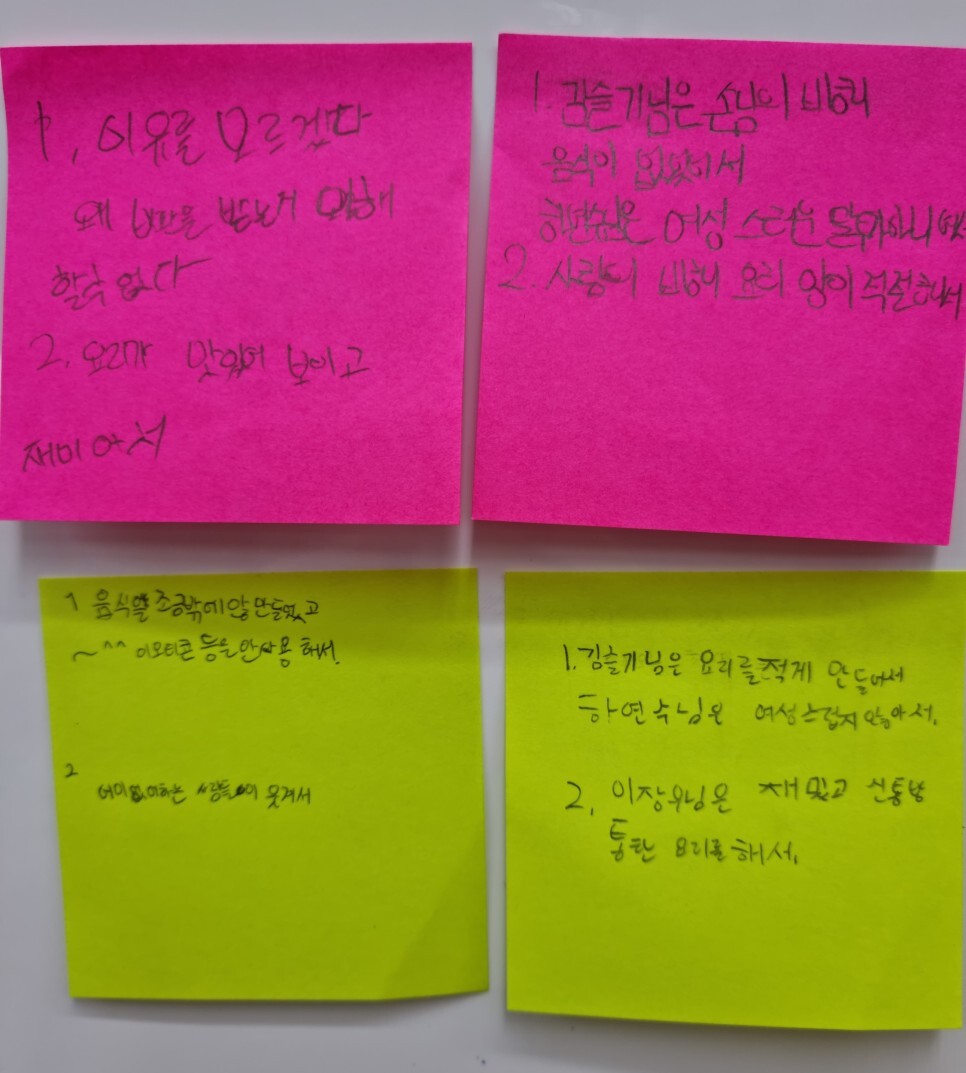 1, 이유를 모르겠다
왜 비판을 받는지 이해
할수 없다
2, 요리가 맛있어 보이고
재미아서
1. 김슬기님은 손님에 비해
음식이 없었어서
하연수님은 여성스러운 말투가아니
2. 사람에 비해 요리 양이 적절해서
1 음식을 조금밖에 않만들었고
~^^ 이모티콘 등을 안사용 해서.
2
어이없어하는 사람들이 웃겨서
1. 김슬기님은 요리를 적게 만들어서
하연수님은 여성스럽지 않아서.
2, 이장우님은 재밌고 신통방
통한 요리를 해서.